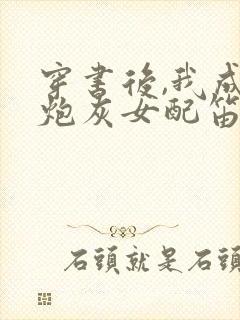 穿書後,我成
炮灰女配笛
石頭就是石頭